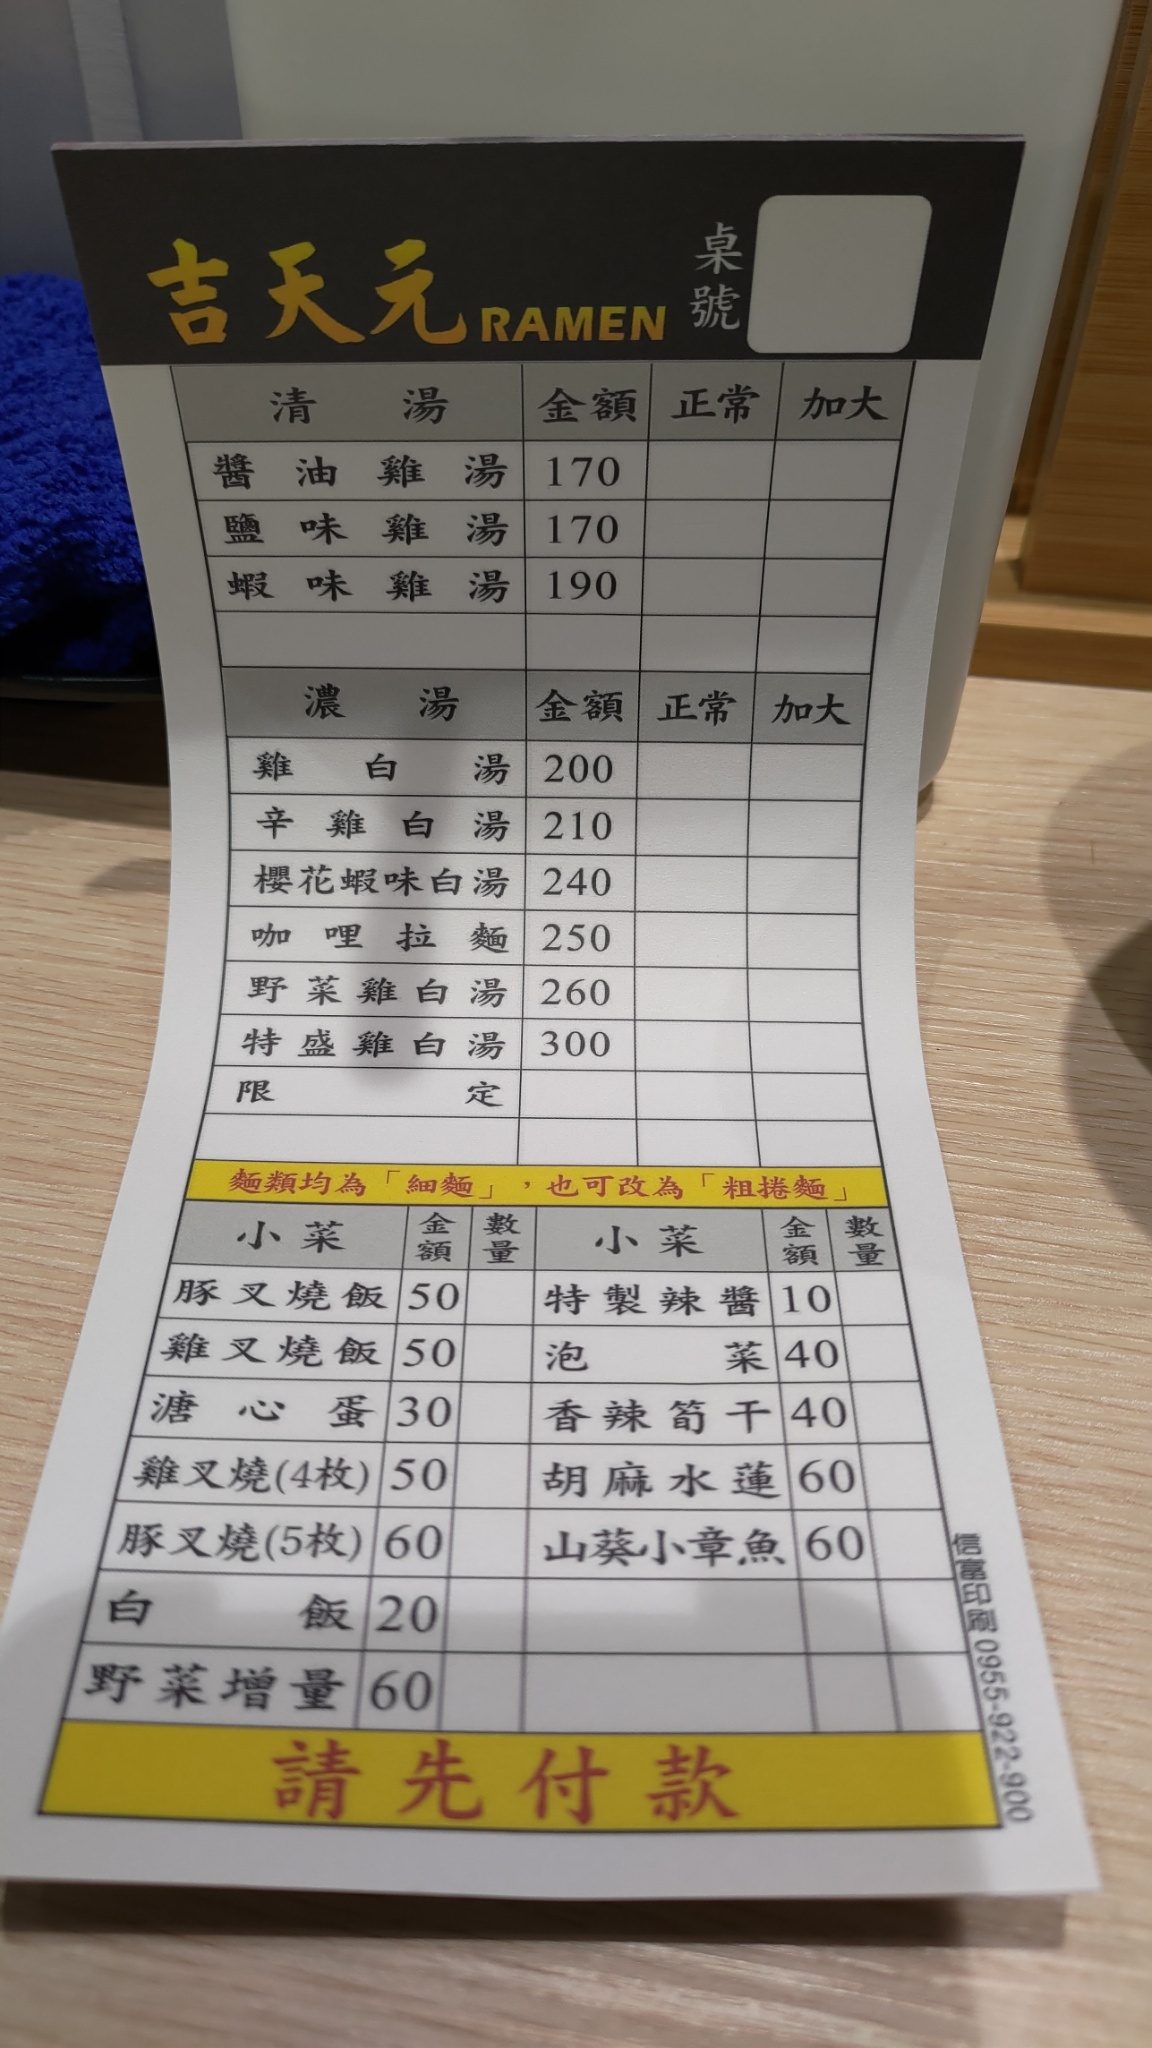 吉天元 RAMEN 桌號
清湯 金額 正常 加大
醬油雞湯 170
鹽味雞湯 170
蝦味雞湯 190
濃湯 金額 正常 加大
雞白湯 200
辛雞白湯 210
櫻花蝦味白湯 240
咖哩拉麵 250
野菜雞白湯 260
特盛雞白湯 300
限定
麵類均為「細麵」，也可改為「粗捲麵」
小菜 金額 數量 小菜 金額 數量
豚叉燒飯 50 特製辣醬 10
雞叉燒飯 50 泡菜 40
溏心蛋 30 香辣筍干 40
雞叉燒(4枚) 50 胡麻水蓮 60
豚叉燒(5枚) 60 山葵小章魚 60
白飯 20
野菜增量 60
請先付款
信富印刷 0955-922-900